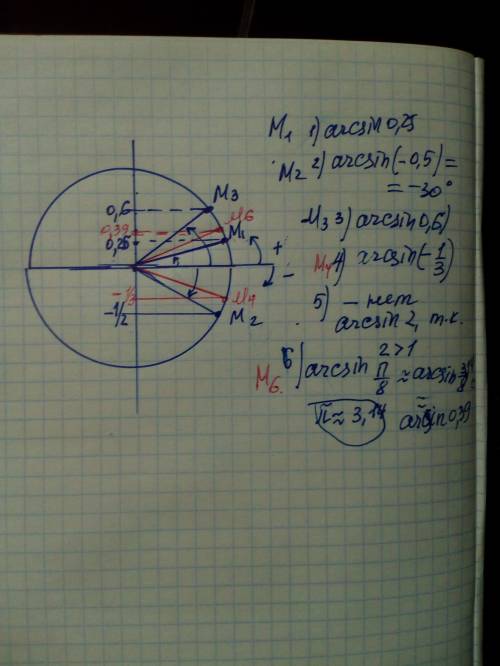 M₁ 1) arcsin 0,25
M₂ 2) arcsin(-0,5) =
= -30°
M3
0,6
M6
0,39
M₁
0,25
+
-
-1/3
M4
-1/2
M2
M3 3) arcsin 0,6)
M4 4) arcsin(-1/3)
5) - нет
arcsin 2, т.к.
2>1
M6. 6) arcsin π/8 ≈ arcsin 3,14/8
π ≈ 3,14
≈ arcsin 0,39